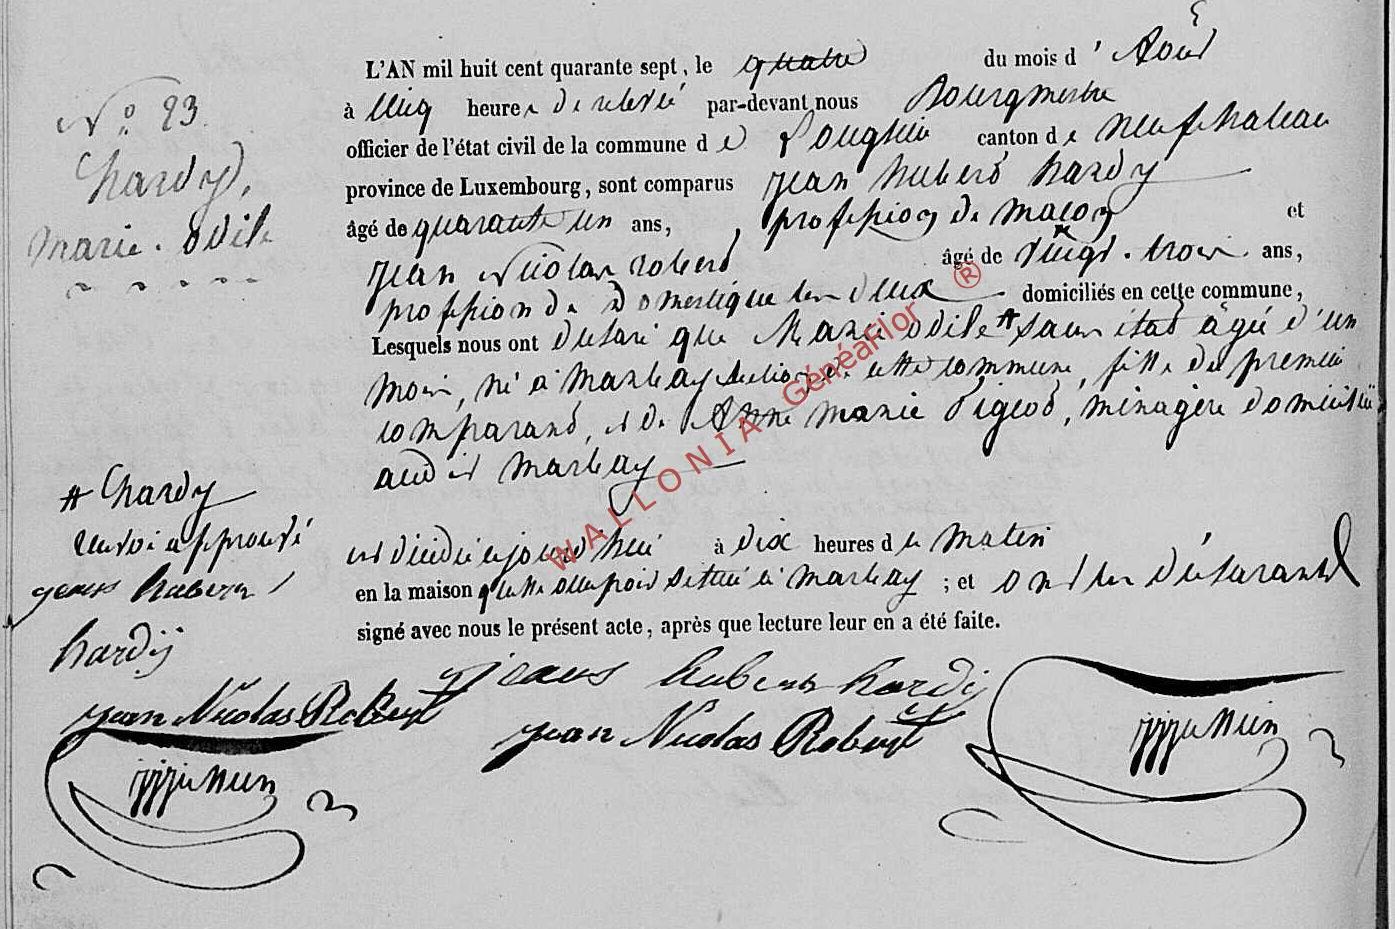 N° 23.
hardy,
marie. odile
L'AN mil huit cent quarante sept, le quatre du mois d' Août
à cinq heures de relevé par-devant nous Bourgmestre
officier de l'état civil de la commune de Longlier canton de neufchateau
province de Luxembourg, sont comparus jean hubert hardy
âgé de quarante un ans, profession de macon et
jean nicolas robert âgé de vingt. trois ans,
profession de domestique les deux domiciliés en cette commune,
Lesquels nous ont déclaré que Marie odile # sans état âgée d'un
mois, né à marbay section de cette commune, fille du premier
comparant, et de Anne marie Pigeot, ménagère domiciliée
audit marbay
est décédé aujourd'hui à dix heures du matin
en la maison quelle occupoit située à marbay ; et ont les déclarants
signé avec nous le présent acte, après que lecture leur en a été faite.
# hardy
renvoi approuvé
jeans huberts
hardij
jean Nicolas Robert
jeans huberts hardij
jean Nicolas Robert
WALLONIA GénéaFlor ®